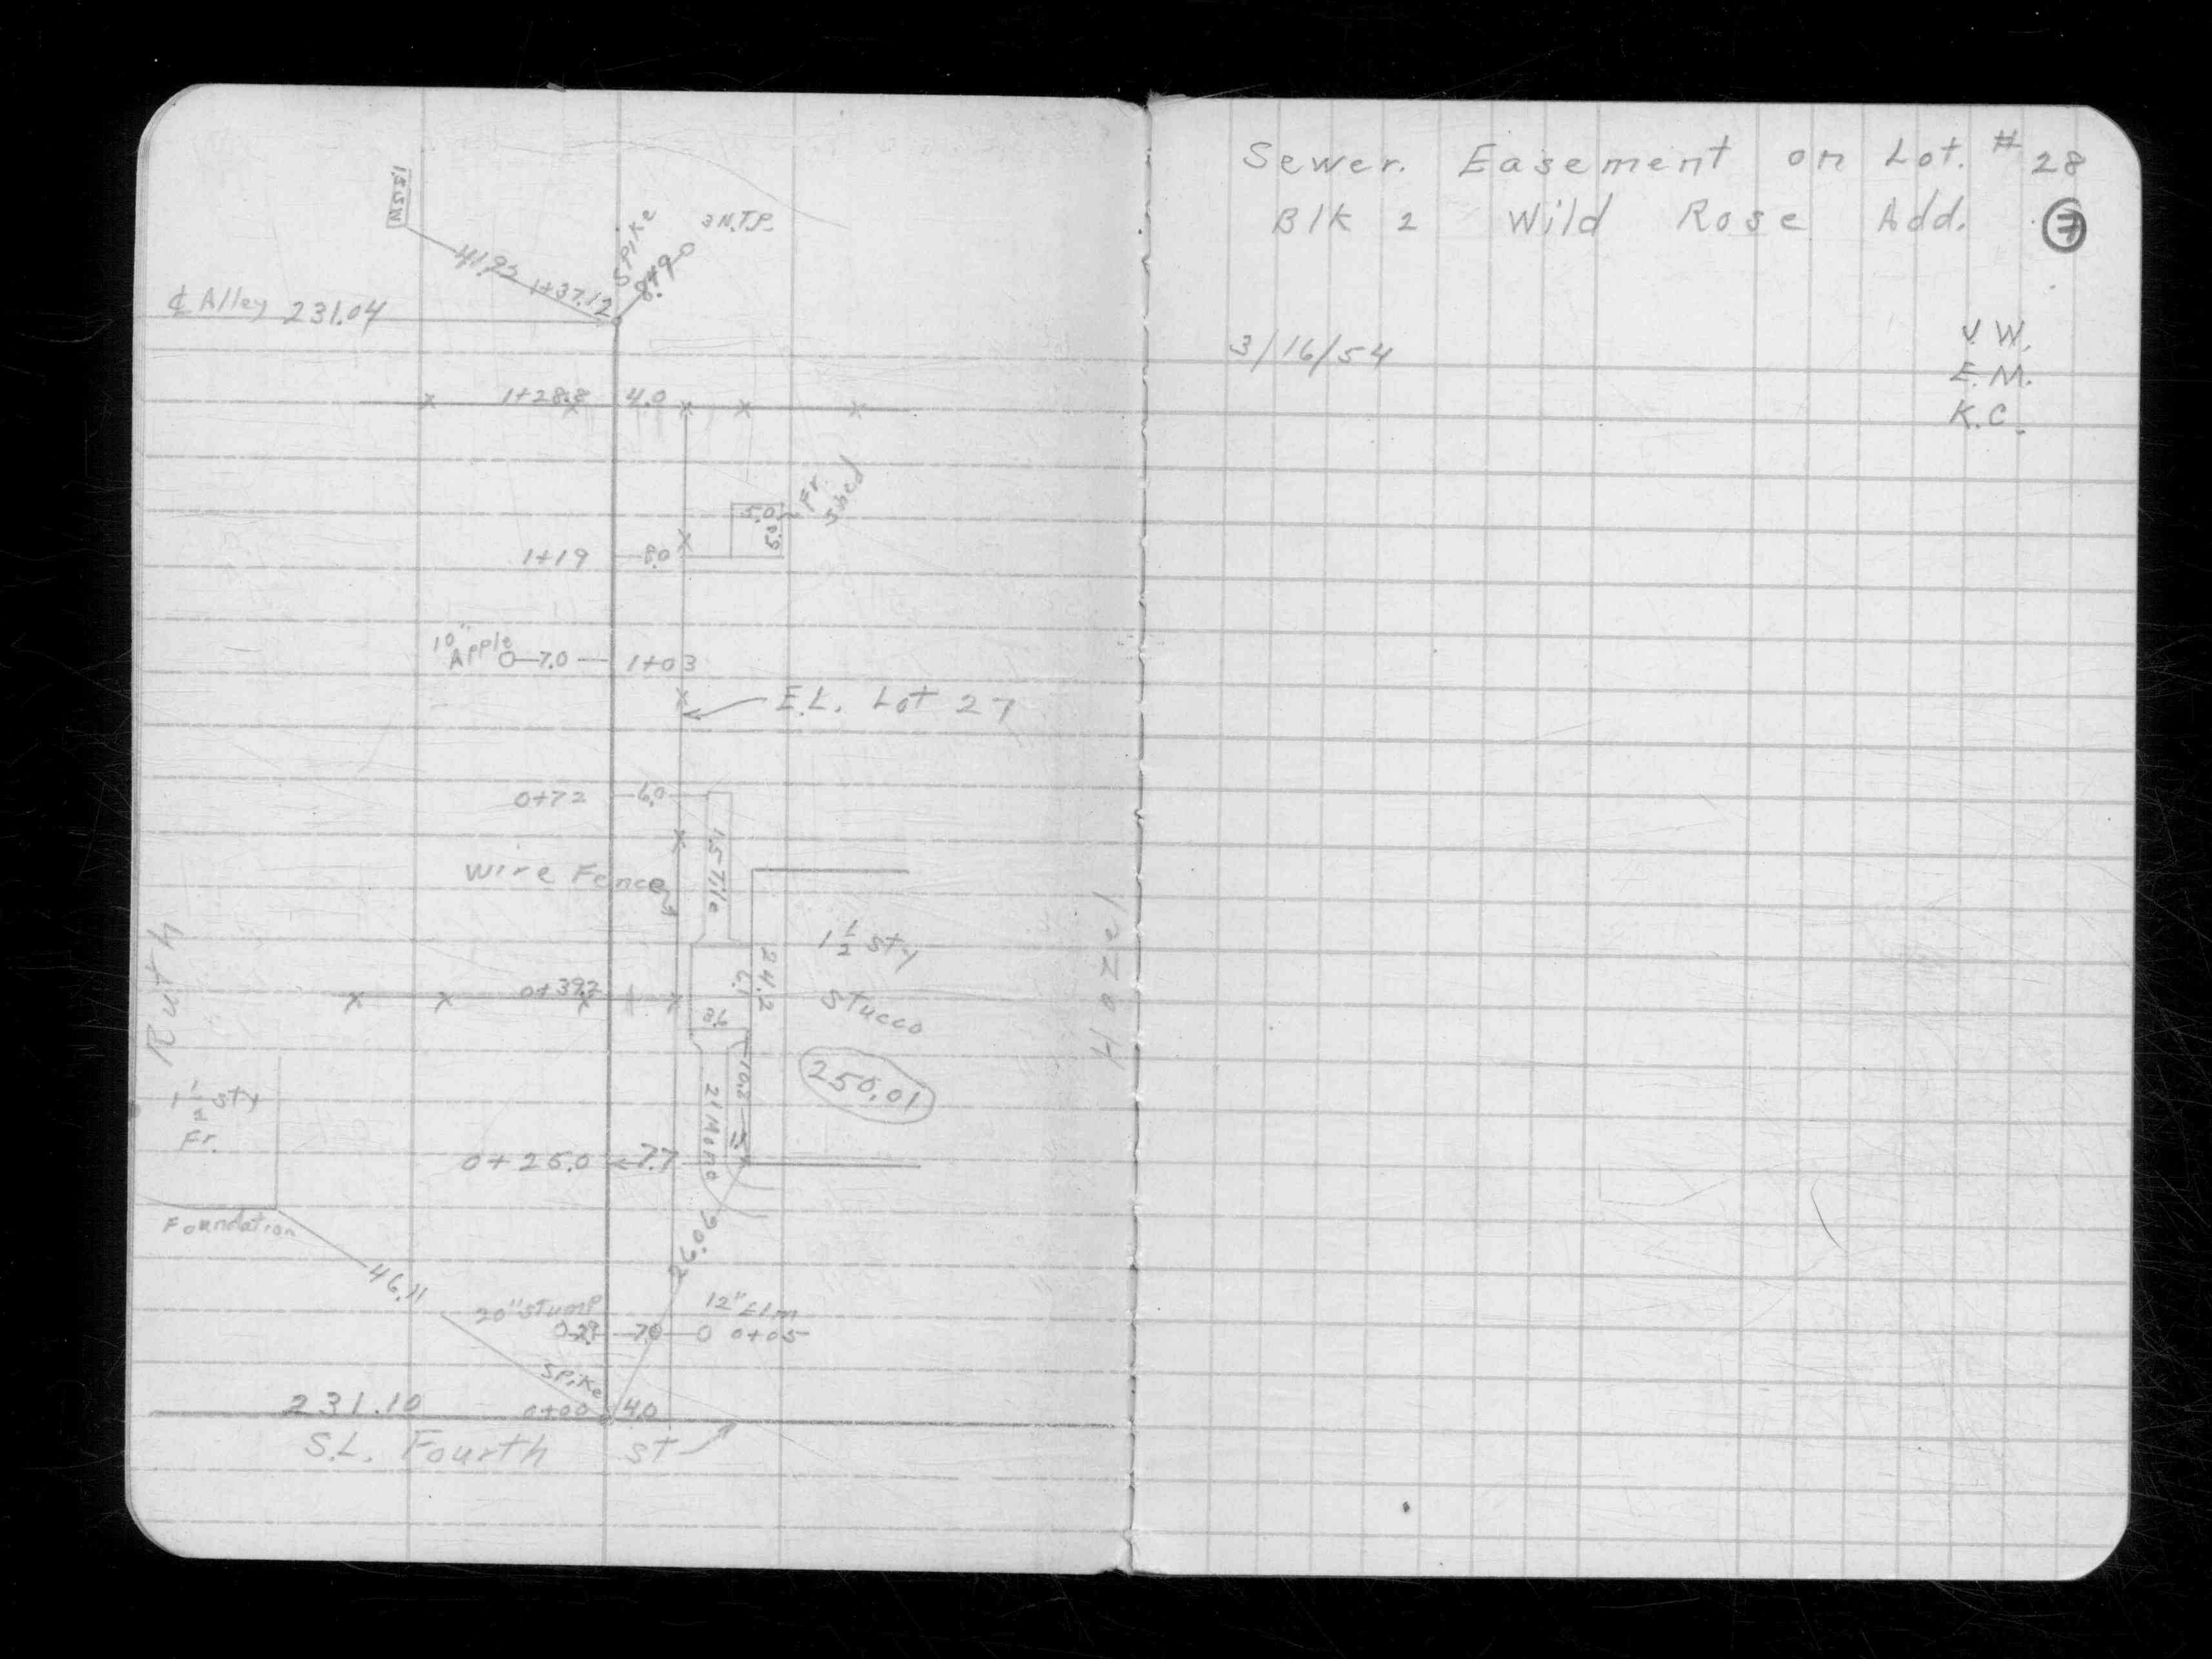 3 N.T.P.
Spike
8.49
41.95
1+37.12
℄ Alley 231.04
1+28.8 4.0
Fr.
Shed
5.0
5.0
1+19 8.0
10" Apple 7.0 1+03
E.L. Lot 27
0+72 6.0
15 Tile
Wire Fence
1½ sty
Stucco
24.2
6.1
0+39.2
Ruth
Hazel
10.2
21 Mono
250.01
1½ sty
Fr.
0+25.0 7.7
Foundation
46.11
26.06
20" Stump
12" Elm
7.0 0+05
Spike
231.10 0+00 4.0
S.L. Fourth St
Sewer. Easement on Lot. # 28
Blk 2 Wild Rose Add.
7
3/16/54
V.W.
E.M.
K.C.